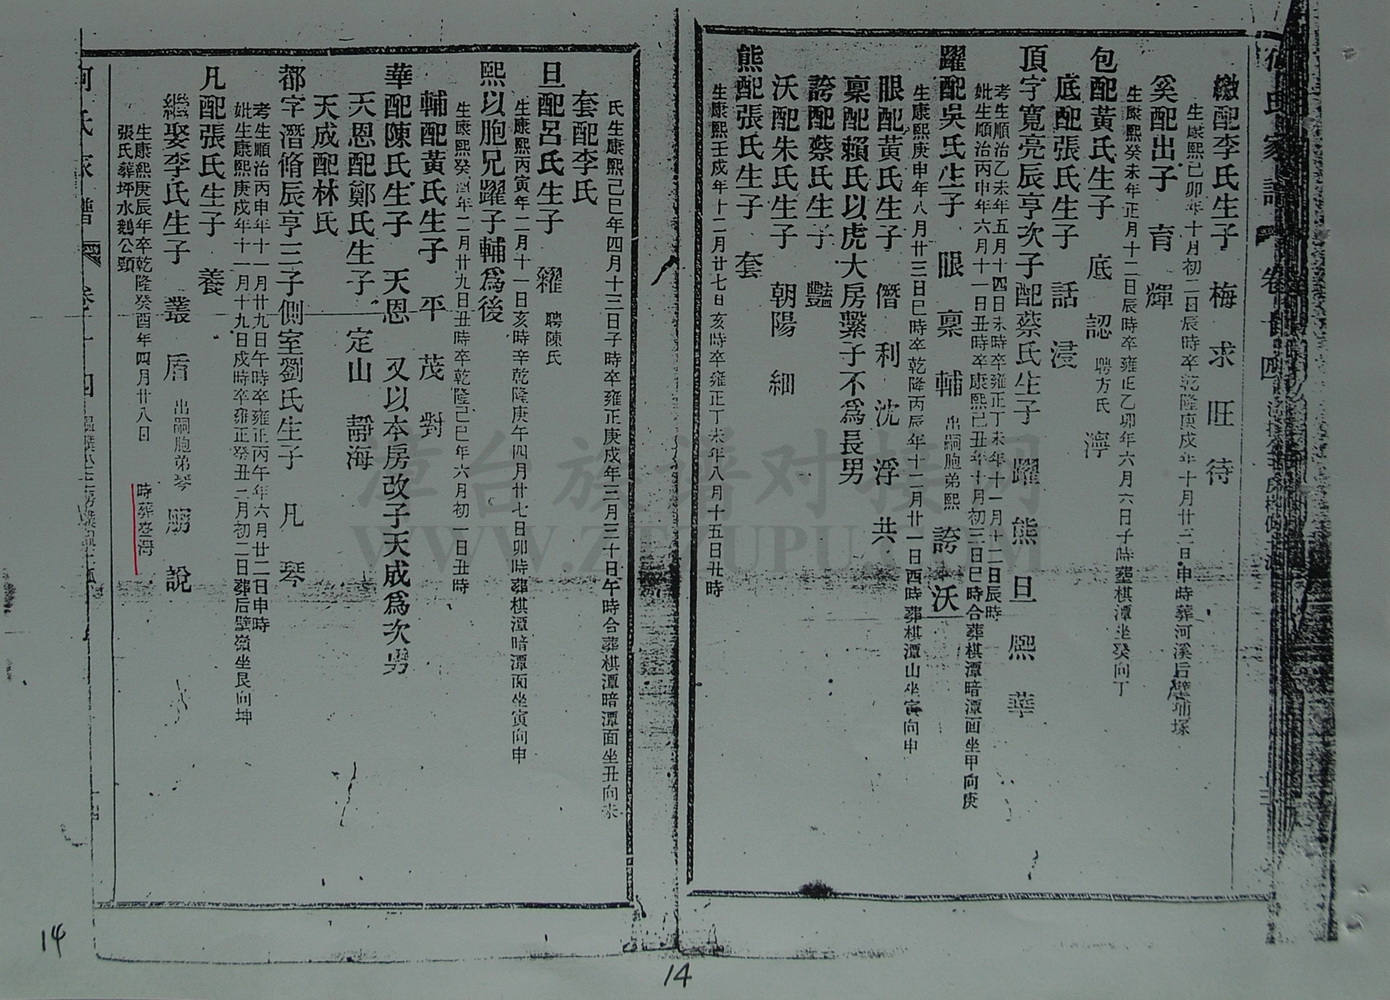 繳配李氏生子 梅 求 旺 待
生康熙己卯年十月初二日辰時卒乾隆庚戍年十月廿二日申時葬河溪后壁埔塚
奚配出子 育 輝
生康熙癸未年正月十二日辰時卒雍正乙卯年六月六日子時葬棋潭坐癸向丁
包配黃氏生子 底 認 聘方氏 濘
底配張氏生子 話 浸
頂字寬亮辰亨次子配蔡氏生子 躍 熊 旦 熙 華
考生順治乙未年五月十四日未時卒雍正丁未年十一月十二日辰時
妣生順治丙申年六月十一日丑時卒康熙己丑年十月初三日巳時合葬棋潭暗潭面坐甲向庚
躍配吳氏生子 眼 稟 輔 出嗣胞弟熙 誇 沃
生康熙庚申年八月廿三日巳時卒乾隆丙辰年十二月廿一日酉時葬棋潭山坐寅向申
眼配黃氏生子 僭 利 沈 浮 共
稟配賴氏以虎大房繫子不為長男
誇配蔡氏生子 豔
沃配朱氏生子 朝陽 細
熊配張氏生子 套
生康熙壬戍年十二月廿七日亥時卒雍正丁未年八月十五日丑時
氏生康熙己巳年四月十三日子時卒雍正庚戍年三月三十日午時合葬棋潭暗潭面坐丑向未
套配李氏
旦配呂氏生子 糴 聘陳氏
生康熙丙寅年二月十一日亥時辛乾隆庚午四月廿七日卯時葬棋潭暗潭面坐寅向申
熙以胞兄躍子輔爲後
生康熙癸酉年二月廿九日丑時卒乾隆己巳年六月初一日丑時
輔配黃氏生子 平 茂 對
華配陳氏生子 天恩 又以本房改子天成爲次男
天恩配鄭氏生子 定山 靜海
天成配林氏
都字潛脩辰亨三子側室劉氏生子 凡 琴
考生順治丙申年十一月廿九日午時卒雍正丙午年六月廿二日申時
妣生康熙庚戍年十一月十九日戍時卒雍正癸丑二月初二日葬后壁嶺坐艮向坤
凡配張氏生子 養
繼娶李氏生子 叢 盾 出嗣胞弟琴 廟 說
生康熙庚辰年卒乾隆癸酉年四月廿八日 時葬臺灣
張氏葬坪水鵝公頸
氏家譜 卷十四
14
14
库台族谱对接网
WWW.ZUPU.COM